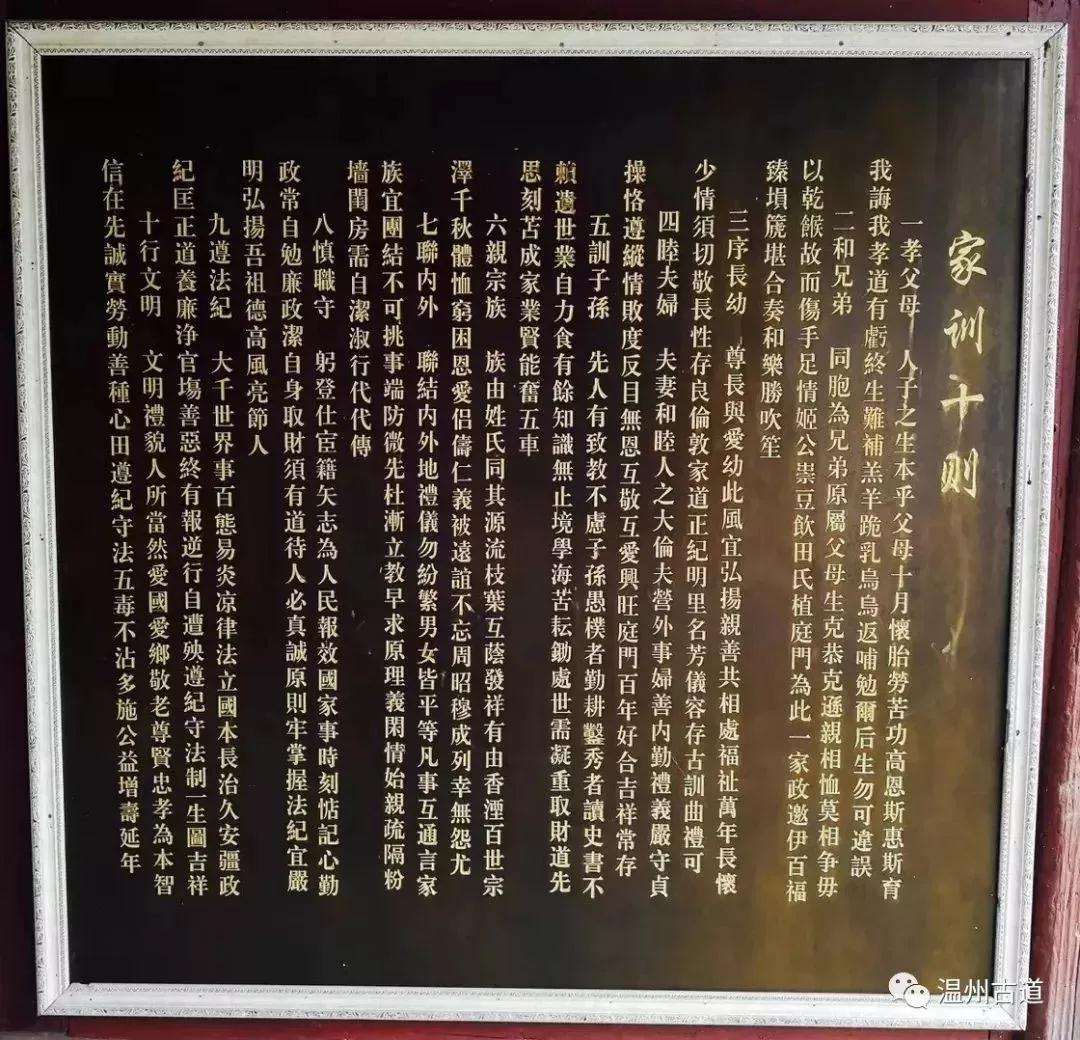 家训十则
一孝父母　人子之生本乎父母十月懷胎勞苦功高恩斯惠斯育
我誨我孝道有虧終生難補羔羊跪乳烏鳥返哺勉爾后生勿可違誤
二和兄弟　同胞為兄弟原屬父母生克恭克遜親相恤莫相争毋
以乾餱故而傷手足情姬公祟豆飲田氏植庭門為此一家政邀伊百福
臻塤篪堪合奏和樂勝吹笙
三序長幼　尊長與愛幼此風宜弘揚親善共相處福祉萬年長懷
少情須切敬長性存良倫敦家道正紀明里名芳儀容存古訓曲禮可
四睦夫婦　夫妻和睦人之大倫夫營外事婦善内勤禮義嚴守貞
操恪遵縱情敗度反目無恩互敬互愛興旺庭門百年好合吉祥常存
五訓子孫　先人有致教不慮子孫愚樸者勤耕鑿秀者讀史書不
賴遺世業自力食有餘知識無止境學海苦耘鋤處世需凝重取財道先
思刻苦成家業賢能奮五車
六親宗族　族由姓氏同其源流枝葉互蔭發祥有由香湮百世宗
澤千秋體恤窮困恩愛侣儔仁義被遠誼不忘周昭穆成列幸無怨尤
七聯内外　聯結内外地禮儀勿紛繁男女皆平等凡事互通言家
族宜團结不可挑事端防微先杜漸立教早求原理義閑情始親疏隔粉
墻閨房需自潔淑行代代傳
八慎職守　躬登仕宦籍矢志為人民報效國家事時刻惦記心勤
政常自勉廉政潔自身取財須有道待人必真誠原則牢掌握法紀宜嚴
明弘揚吾祖德高風亮節人
九遵法紀　大千世界事百態易炎凉律法立國本長治久安疆政
紀匡正道養廉净官塲善惡終有報逆行自遭殃遵紀守法制一生圖吉祥
十行文明　文明禮貌人所當然愛國愛鄉敬老尊賢忠孝為本智
信在先誠實勞動善種心田遵紀守法五毒不沾多施公益增壽延年
温州古道